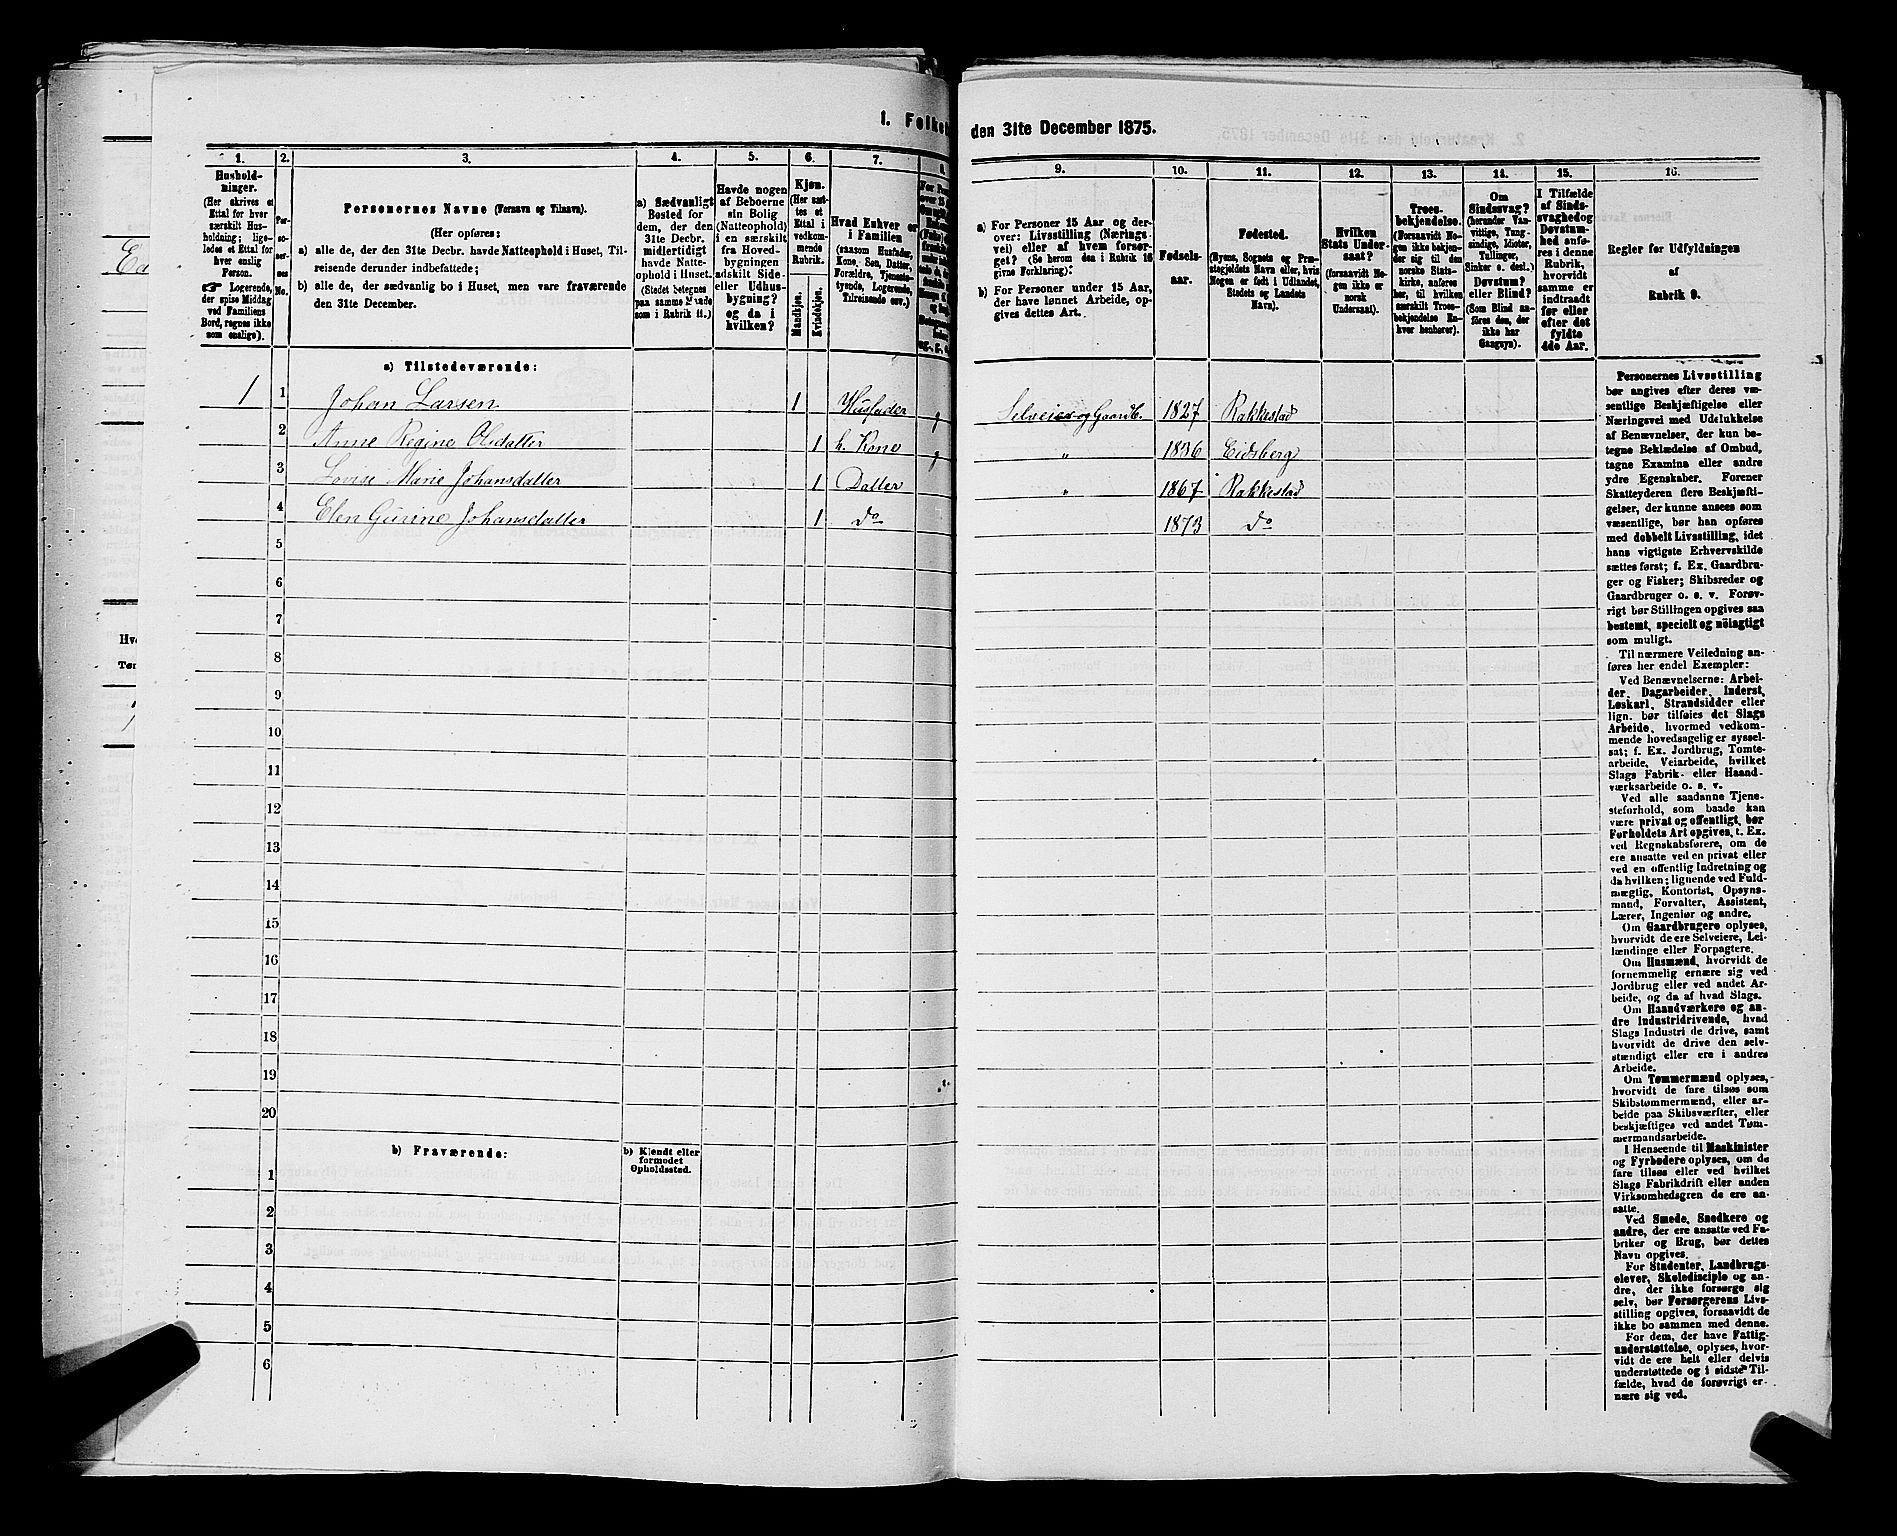 1. Folke
den 31te December 1875.
1.
2.
3.
4.
5.
6.
7.
8.
9.
10.
11.
12.
13.
14.
15.
16.
Hushold-
ninger.
(Her skrives et
Ettal for hver
særskilt Hus-
holdning; lige-
ledes et Ettal for
hver enslig
Person.
☛ Logerende,
der spise Middag
ved Familiens
Bord, regnes ikke
som enslige).
Per-
so-
ner-
nes
No.
Personernes Navne (Fornavn og Tilnavn).
(Her opføres:
a) alle de, der den 31te Decbr. havde Natteophold i Huset, Til-
reisende derunder indbefattede;
b) alle de, der sædvanlig bo i Huset, men vare fraværende
den 31te December.
a) Sædvanligt
Bosted for
dem, der den
31te Decbr.
midlertidigt
havde Natte-
ophold i Huset.
(Stedet betegnes
paa samme Maade
som i Rubrik 11.)
Havde nogen
af Beboerne
sin Bolig
(Natteophold)
i en særskilt
fra Hoved-
bygningen
adskilt Side-
eller Udhus-
bygning?
og da i
hvilken?
Kjøn.
(Her sæt-
tes et
Ettal i
vedkom-
mende
Rubrik.
Mandkjøn.
Kvindekjøn.
Hvad Enhver er
i Familien
(saasom Husfader,
Kone, Søn, Datter,
Forældre, Tjeneste-
tyende, Logerende,
Tilreisende osv.)
a) For Personer 15 Aar og der-
over: Livsstilling (Nærings-
vei) eller af hvem forsør-
get? (Se herom den i Rubrik 16
givne Forklaring).
b) For Personer under 15 Aar,
der have lønnet Arbeide, op-
gives dettes Art.
Fødsels-
aar.
Fødested.
(Byens, Sognets og Præ-
stegjeldets Navn eller, hvis
Nogen er født i Udlandet,
Stedets og Landets
Navn).
Hvilken
Stats Under-
saat?
(forsaavidt No-
gen ikke er
norsk
Undersaat).
Troes-
bekjendelse.
(Forsaavidt No-
gen ikke bekjen-
der sig til den
norske Stats-
kirke, anføres
her, til hvilken
særskilt Troes-
bekjendelse En-
hver henhører).
Om
Sindssvag?
(herunder Van-
vittige, Tung-
sindige, Idioter,
Tullinger,
Sinker o. desl.)
Døvstum?
eller Blind?
(Som Blind an-
føres den, der
ikke har
Gangsyn).
I Tilfælde
af Sinds-
svaghed og
Døvstum-
hed anfø-
res i denne
Rubrik,
hvorvidt
samme er
indtraadt
før eller
efter det
fyldte
4de Aar.
Regler for Udfyldningen
af
Rubrik 9.
a) Tilstedeværende:
1 1 Johan Larsen 1 Husfader g Selveier og Gaardb. 1827 Rakkestad
2 Anne Regine Olsdatter 1 h. Kone g " 1836 Eidsberg
3 Lovise Marie Johansdatter 1 Datter " 1867 Rakkestad
4 Elen Gurine Johansdatter 1 Do 1873 Do
5
6
7
8
9
10
11
12
13
14
15
16
17
18
19
20
b) Fraværende:
b) Kjendt eller
formodet
Opholdssted.
1
2
3
4
5
6
Personernes Livsstilling
bør angives efter deres væ-
sentlige Beskjæftigelse eller
Næringsvei med Udelukkelse
af Benævnelser, der kun be-
tegne Beklædelse af Ombud,
tagne Examina eller andre
ydre Egenskaber. Forener
Skatteyderen flere Beskjæfti-
gelser, der kunne ansees som
væsentlige, bør han opføres
med dobbelt Livsstilling, idet
hans vigtigste Erhvervskilde
sættes først; f. Ex. Gaardbru-
ger og Fisker; Skibsreder og
Gaardbruger o. s. v. Forøv-
rigt bør Stillingen opgives saa
bestemt, specielt og nöiagtigt
som muligt.
Til nærmere Veiledning an-
føres her endel Exempler:
Ved Benævnelserne: Arbei-
der, Dagarbeider, Inderst,
Løskarl, Strandsidder eller
lign. bør tilføies det Slags
Arbeide, hvormed vedkom-
mende hovedsagelig er syssel-
sat; f. Ex. Jordbrug, Tomte-
arbeide, Veiarbeide, hvilket
Slags Fabrik- eller Haand-
værksarbeide o. s. v.
Ved alle saadanne Tjene-
steforhold, som baade kan
være privat og offentligt, bør
Forholdets Art opgives, t. Ex.
ved Regnskabsførere, om de
ere ansatte ved en privat eller
ved en offentlig Indretning og
da hvilken; lignende ved Fuld-
mægtig, Kontorist, Opsyns-
mand, Forvalter, Assistent,
Lærer, Ingeniør og andre.
Om Gaardbrugere oplyses,
hvorvidt de ere Selveiere, Lei-
lændinge eller Forpagtere.
Om Husmænd, hvorvidt de
fornemmelig ernære sig ved
Jordbrug eller ved andet Ar-
beide, og da af hvad Slags.
Om Haandværkere og an-
dre Industridrivende, hvad
Slags Industri de drive, samt
hvorvidt de drive den selv-
stændigt eller ere i andres
Arbeide.
Om Tømmermænd oplyses,
hvorvidt de fare tilsøs som
Skibstømmermænd, eller ar-
beide paa Skibsværfter, eller
beskjæftiges ved andet Tøm-
mermandsarbeide.
I Henseende til Maskinister
og Fyrbødere oplyses, om de
fare tilsøs eller ved hvilket
Slags Fabrikdrift eller anden
Virksomhedsgren de ere an-
satte.
Ved Smede, Snedkere og
andre, der ere ansatte ved Fa-
briker og Brug, bør dettes
Navn opgives.
For Studenter, Landbrugs-
elever, Skoledisciple og an-
dre, der ikke forsørge sig
selv, bør Forsørgerens Livs-
stilling opgives, forsaavidt de
ikke bo sammen med denne.
For dem, der have Fattig-
understøttelse, oplyses, hvor-
vidt de ere helt eller delvis
understøttede og i sidste Til-
fælde, hvad de forøvrigt er-
nære sig ved.